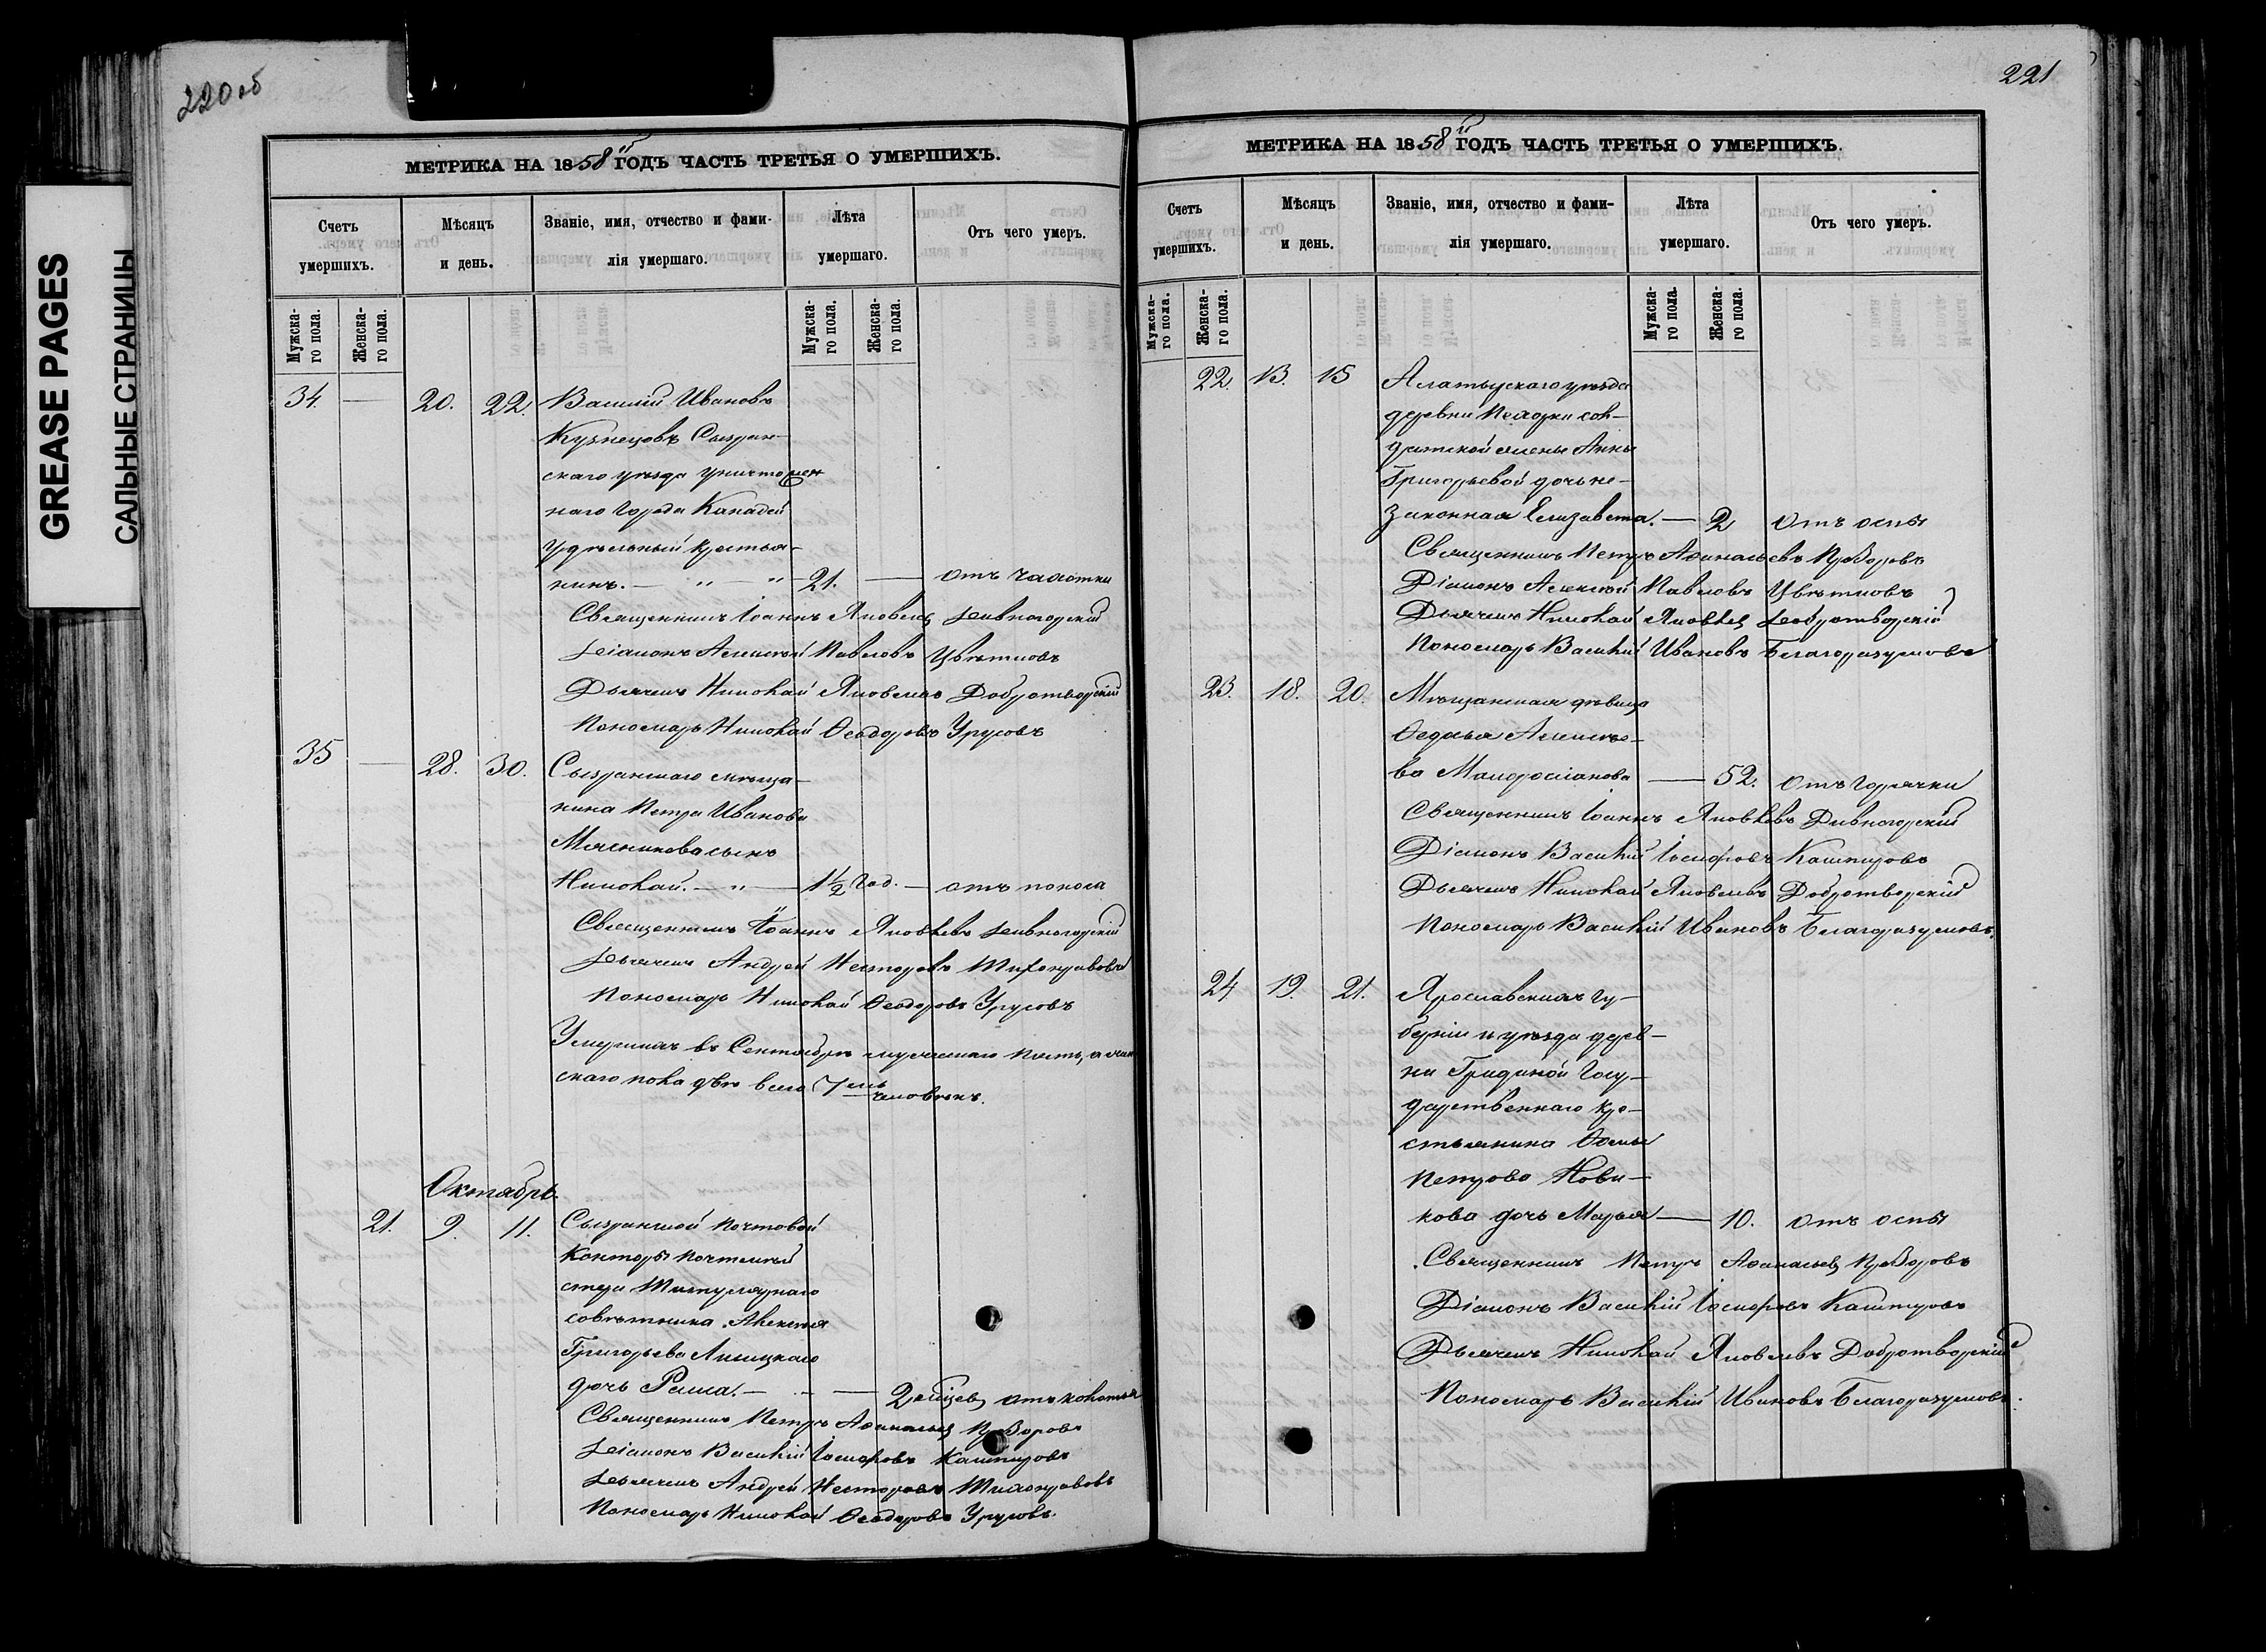 GREASE PAGES
САЛЬНЫЕ СТРАНИЦЫ
220 об
МЕТРИКА НА 1858й ГОДЪ ЧАСТЬ ТРЕТЬЯ О УМЕРШИХЪ.
Счетъ умершихъ.
Мѣсяцъ и день.
Званіе, имя, отчество и фами-
лія умершаго.
Лѣта умершаго.
Отъ чего умеръ.
Мужска-
го пола.
Женска-
го пола.
Мужска-
го пола.
Женска-
го пола.
34. — 20. 22. Василій Ивановъ
Кузнецовъ Сызран-
скаго уѣзда уничтожен
наго города Канадей
удѣльный крестья-
нинъ. — " — " — 21. — отъ чахотки
Священникъ Іоаннъ Яковлевъ Дивногорскій
Діаконъ Алексѣй Павловъ Цвѣтковъ
Дьячекъ Николай Яковлевъ Добротворскій
Пономарь Николай Ѳеодоровъ Урусовъ
35 — 28. 30. Сызранскаго мѣща-
нина Петра Иванова
Мясникова сынъ
Николай. — " — 1½ год. — отъ поноса
Священникъ Іоаннъ Яковлевъ Дивногорскій
Дьячекъ Андрей Несторовъ Тихонравовъ
Пономарь Николай Ѳеодоровъ Урусовъ
Умершихъ въ Сентябрѣ мужескаго пять, а жен
скаго пола двѣ всего 7мь человѣкъ.
Октябрь.
21. 9. 11. Сызранской почтовой
конторы почтмей
стера Титулярнаго
совѣтника Алексѣя
Григорьева Лисицкаго
дочь Раиса. — - — 2 мѣсяц. отъ колотья
Священникъ Петръ Аѳанасьевъ Прозоровъ
Діаконъ Василій Іосифовъ Кашпировъ
Дьячекъ Андрей Несторовъ Тихонравовъ
Пономарь Николай Ѳеодоровъ Урусовъ.
221
МЕТРИКА НА 1858й ГОДЪ ЧАСТЬ ТРЕТЬЯ О УМЕРШИХЪ.
Счетъ умершихъ.
Мѣсяцъ и день.
Званіе, имя, отчество и фами-
лія умершаго.
Лѣта умершаго.
Отъ чего умеръ.
Мужска-
го пола.
Женска-
го пола.
Мужска-
го пола.
Женска-
го пола.
22. 13. 15 Алатырскаго уѣзда
деревни сол-
датской жены Анны
Григорьевой дочь не-
законная Елизавета. — 2 отъ оспы
Священникъ Петръ Аѳанасьевъ Прозоровъ
Діаконъ Алексѣй Павловъ Цвѣтковъ
Дьячекъ Николай Яковлевъ Добротворскій
Пономарь Василій Ивановъ Благоразумовъ
23. 18. 20. Мѣщанская дѣвица
Ѳедосья Алексѣе-
ва — 52. отъ горячки
Священникъ Іоаннъ Яковлевъ Дивногорскій
Діаконъ Василій Іосифовъ Кашпировъ
Дьячекъ Николай Яковлевъ Добротворскій
Пономарь Василій Ивановъ Благоразумовъ.
24 19. 21. Ярославской гу-
берніи и уѣзда дерев-
ни Гридиной Госу-
дарственнаго кре-
стьянина Ѳомы
Петрова Нови-
кова дочь Марья — 10. отъ оспы
Священникъ Петръ Аѳанасьевъ Прозоровъ
Діаконъ Василій Іосифовъ Кашпировъ
Дьячекъ Николай Яковлевъ Добротворскій
Пономарь Василій Ивановъ Благоразумовъ.